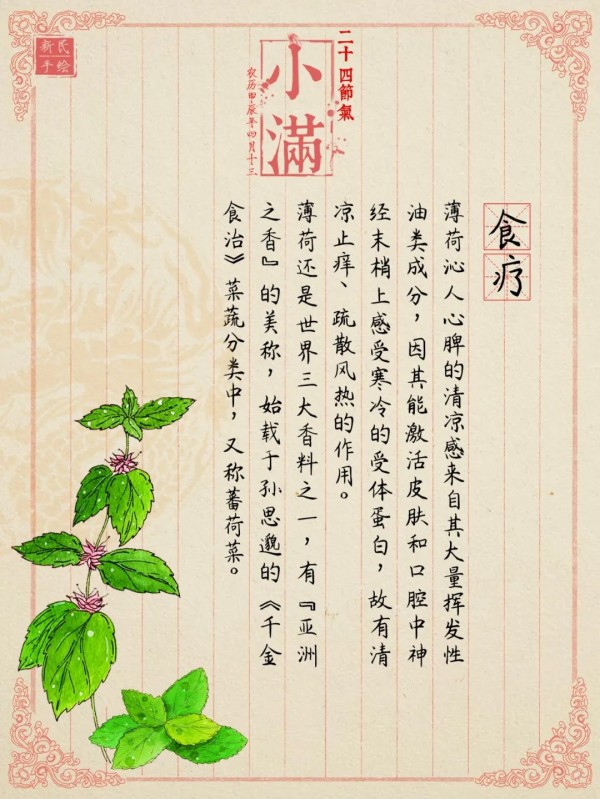 新氏
手绘
二十四節氣
小滿
农历甲辰年四月十三
食疗
薄荷沁人心脾的清凉感来自其大量挥发性
油类成分，因其能激活皮肤和口腔中神
经末梢上感受寒冷的受体蛋白，故有清
凉止痒、疏散风热的作用。
薄荷还是世界三大香料之一，有『亚洲
之香』的美称，始载于孙思邈的《千金
食治》菜蔬分类中，又称蕃荷菜。